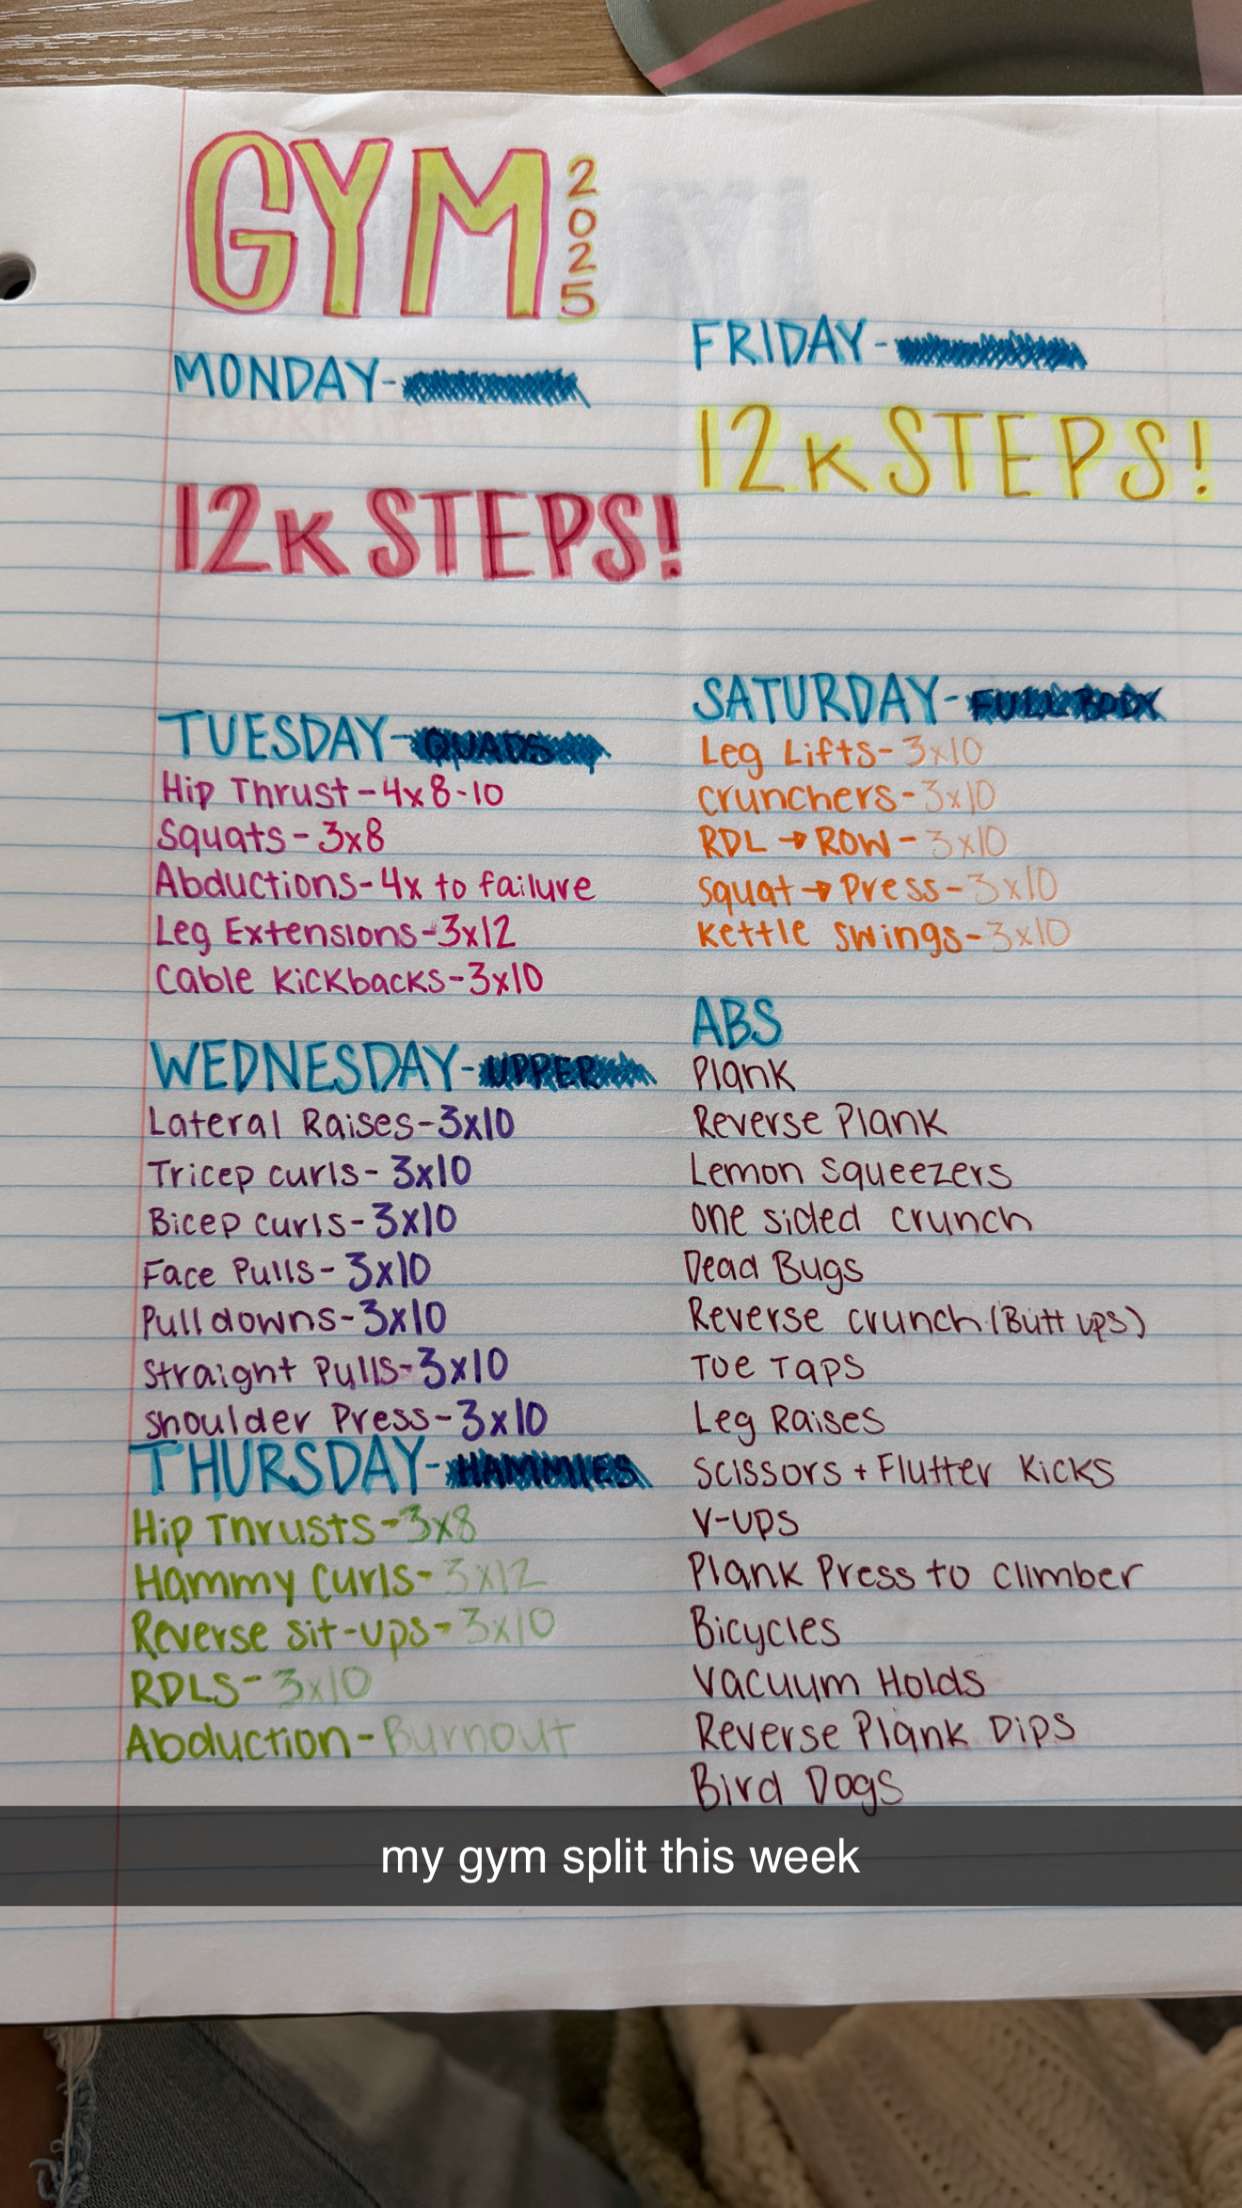 GYM 2025
MONDAY-
12K STEPS!
TUESDAY- QUADS
Hip Thrust - 4x8-10
Squats - 3x8
Abductions - 4x to failure
Leg Extensions - 3x12
Cable Kickbacks - 3x10
WEDNESDAY- UPPER
Lateral Raises - 3x10
Tricep curls - 3x10
Bicep curls - 3x10
Face Pulls - 3x10
Pulldowns - 3x10
Straight Pulls - 3x10
Shoulder Press - 3x10
THURSDAY- HAMMIES
Hip Thrusts - 3x8
Hammy Curls - 3x12
Reverse sit-ups - 3x10
RDLS - 3x10
Abduction - Burnout
FRIDAY-
12K STEPS!
SATURDAY- FULL BODY
Leg Lifts - 3x10
crunchers - 3x10
RDL → ROW - 3x10
Squat → Press - 3x10
Kettle swings - 3x10
ABS
Plank
Reverse Plank
Lemon squeezers
one sided crunch
Dead Bugs
Reverse crunch (Butt ups)
Toe Taps
Leg Raises
Scissors + Flutter Kicks
V-ups
Plank Press to climber
Bicycles
Vacuum Holds
Reverse Plank Dips
Bird Dogs
my gym split this week